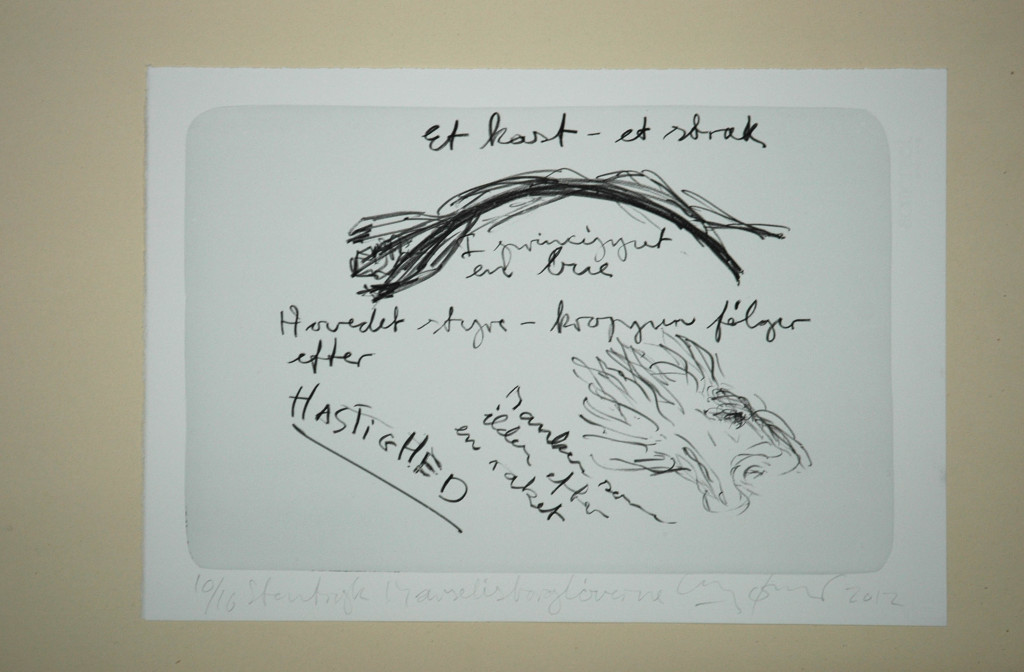 Et kast - et stræk
I princippet
en bue
Hovedet styre - kroppen følger
efter
HASTiGHED
Manken som
ilden efter
en raket
10/16 Stentryk Marselisborgløverne 2012